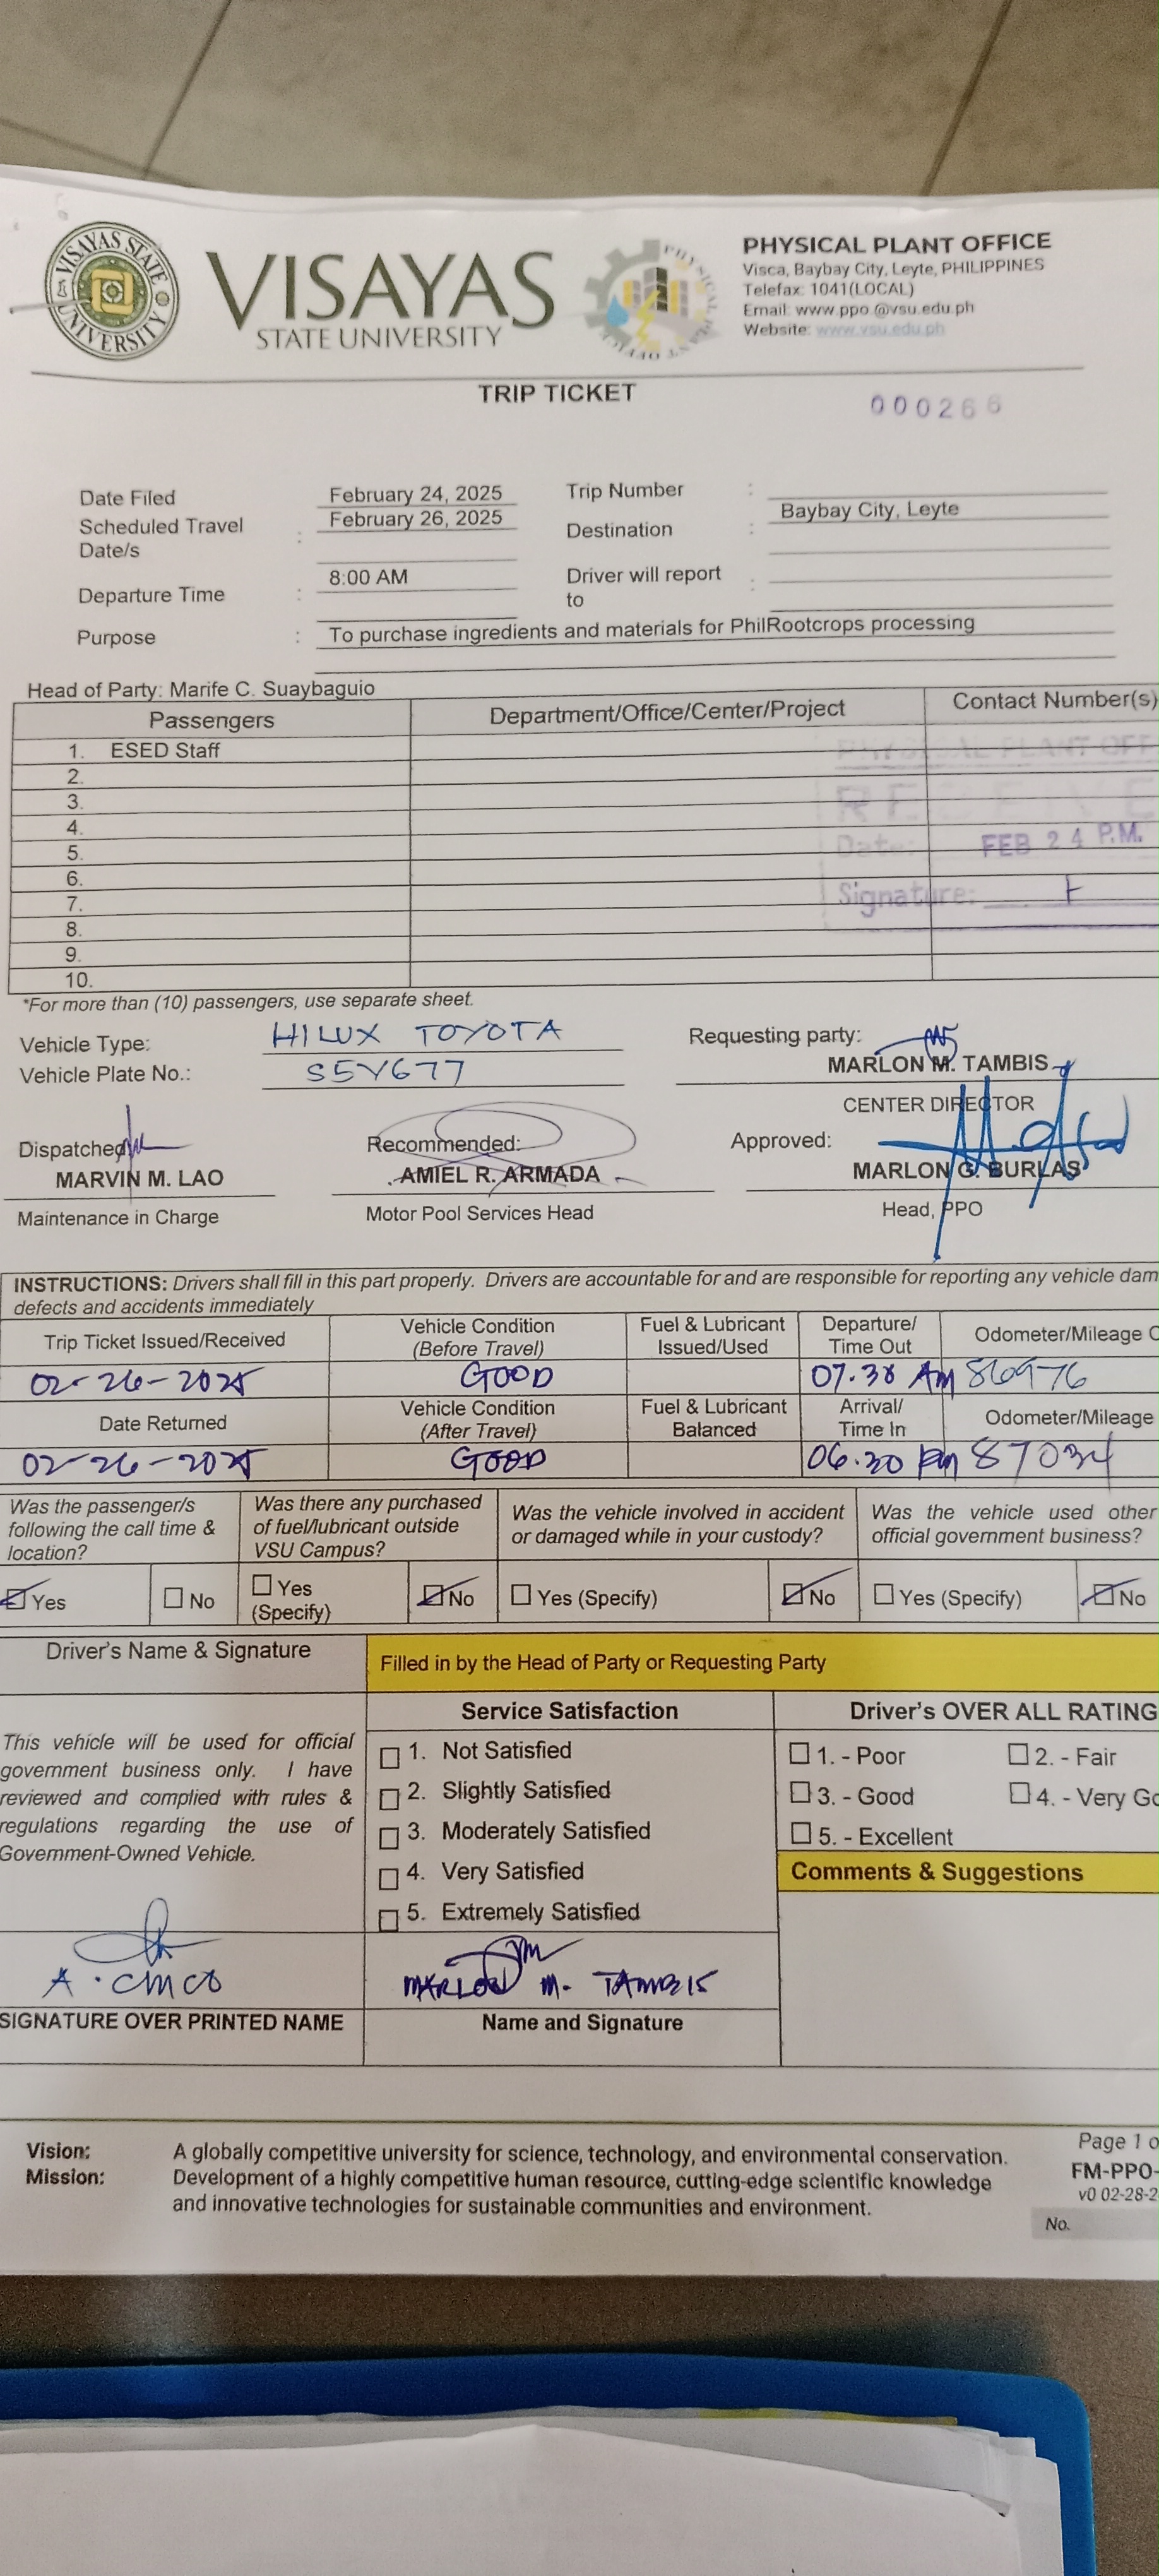 VISAYAS STATE UNIVERSITY
VISAYAS
STATE UNIVERSITY
PHYSICAL PLANT OFFICE
Visca, Baybay City, Leyte, PHILIPPINES
Telefax: 1041(LOCAL)
Email: www.ppo @vsu.edu.ph
Website: www.vsu.edu.ph
TRIP TICKET
000266
Date Filed February 24, 2025 Trip Number :
Scheduled Travel Date/s : February 26, 2025 Destination : Baybay City, Leyte
Departure Time : 8:00 AM Driver will report to :
Purpose : To purchase ingredients and materials for PhilRootcrops processing
Head of Party: Marife C. Suaybaguio
Passengers Department/Office/Center/Project Contact Number(s)
1. ESED Staff
2.
3.
4.
5.
6.
7.
8.
9.
10.
PHYSICAL PLANT OFF
RECEIVE
Date: FEB 24 P.M.
Signature:
*For more than (10) passengers, use separate sheet.
Vehicle Type: HILUX TOYOTA
Vehicle Plate No.: S5Y677
Requesting party:
MARLON M. TAMBIS
CENTER DIRECTOR
Dispatched Recommended: Approved:
MARVIN M. LAO AMIEL R. ARMADA MARLON G. BURLAS
Maintenance in Charge Motor Pool Services Head Head, PPO
INSTRUCTIONS: Drivers shall fill in this part properly. Drivers are accountable for and are responsible for reporting any vehicle dam
defects and accidents immediately
Trip Ticket Issued/Received Vehicle Condition (Before Travel) Fuel & Lubricant Issued/Used Departure/ Time Out Odometer/Mileage O
02-26-2025 GOOD 07.30 AM 86976
Date Returned Vehicle Condition (After Travel) Fuel & Lubricant Balanced Arrival/ Time In Odometer/Mileage
02-26-2025 GOOD 06.30 PM 87034
Was the passenger/s following the call time & location?
Was there any purchased of fuel/lubricant outside VSU Campus?
Was the vehicle involved in accident or damaged while in your custody?
Was the vehicle used other official government business?
Yes No Yes (Specify) No Yes (Specify) No Yes (Specify) No
Driver's Name & Signature
Filled in by the Head of Party or Requesting Party
Service Satisfaction Driver's OVER ALL RATING
This vehicle will be used for official
government business only. I have
reviewed and complied with rules &
regulations regarding the use of
Government-Owned Vehicle.
1. Not Satisfied
2. Slightly Satisfied
3. Moderately Satisfied
4. Very Satisfied
5. Extremely Satisfied
1. - Poor 2. - Fair
3. - Good 4. - Very Go
5. - Excellent
Comments & Suggestions
A. CINCO MARLON M. TAMBIS
SIGNATURE OVER PRINTED NAME Name and Signature
Vision: A globally competitive university for science, technology, and environmental conservation.
Mission: Development of a highly competitive human resource, cutting-edge scientific knowledge
and innovative technologies for sustainable communities and environment.
Page 1 o
FM-PPO-
v0 02-28-2
No.